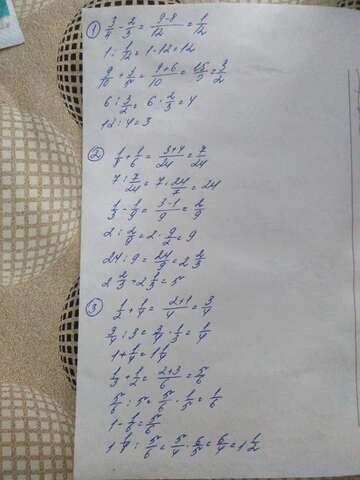 1) 3/4 - 2/3 = 9-8/12 = 1/12
1 : 1/12 = 1·12 = 12
9/10 + 3/5 = 9+6/10 = 15/10 = 3/2
6 : 3/2 = 6 · 2/3 = 4
12 : 4 = 3
2) 1/8 + 1/6 = 3+4/24 = 7/24
7 : 7/24 = 7 · 24/7 = 24
1/3 - 1/9 = 3-1/9 = 2/9
2 : 2/9 = 2 · 9/2 = 9
24 : 9 = 24/9 = 2 2/3
3) 1/2 + 1/4 = 2+1/4 = 3/4
3/4 : 3 = 3/4 · 1/3 = 1/4
1 + 1/4 = 1 1/4
1/3 + 1/2 = 2+3/6 = 5/6
5/6 : 5 = 5/6 · 1/5 = 1/6
1 - 1/6 = 5/6
1 1/4 : 5/6 = 5/4 · 6/5 = 6/4 = 1 1/2